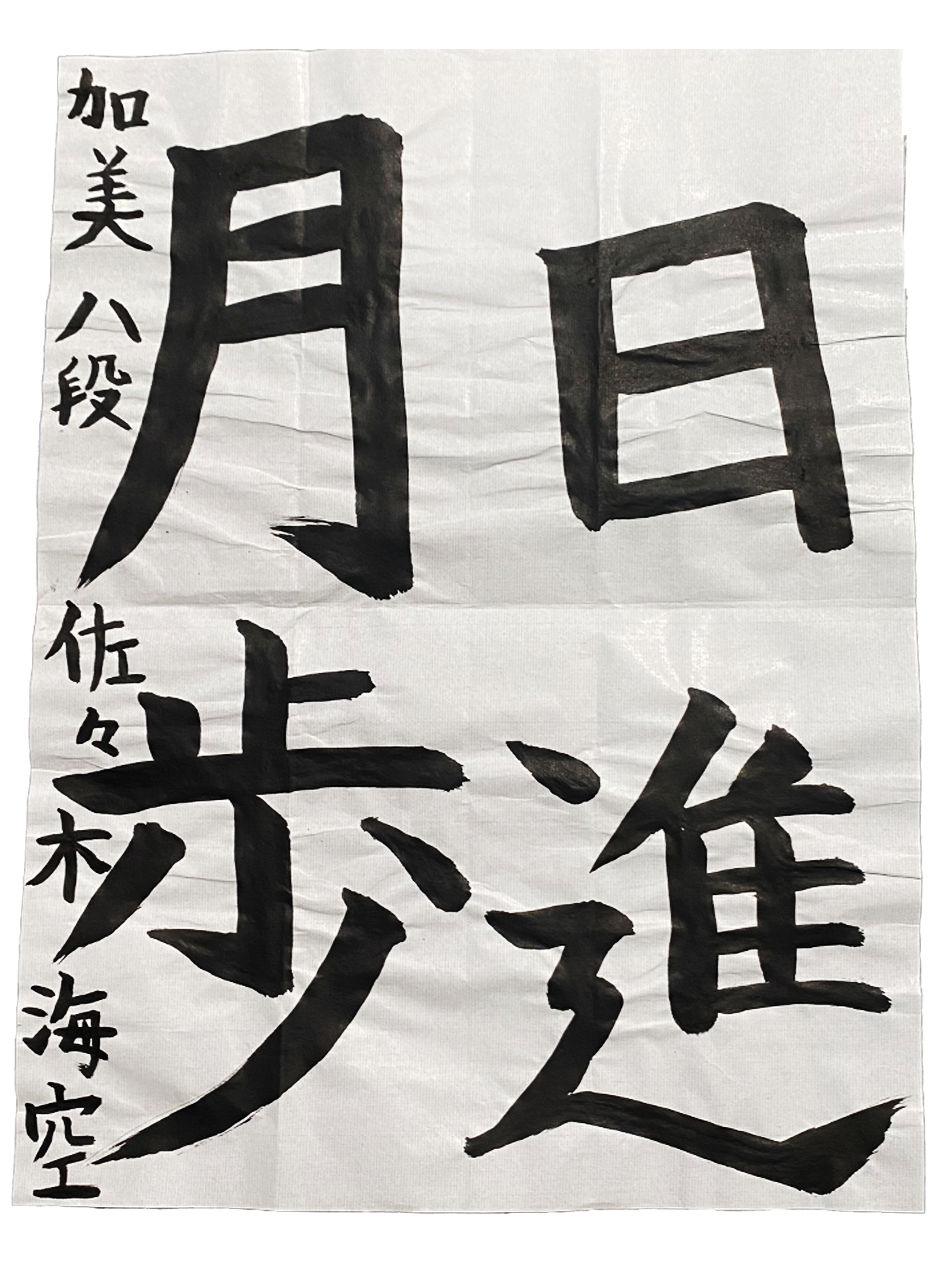 日進
月歩
加美 八段 佐々木 海空